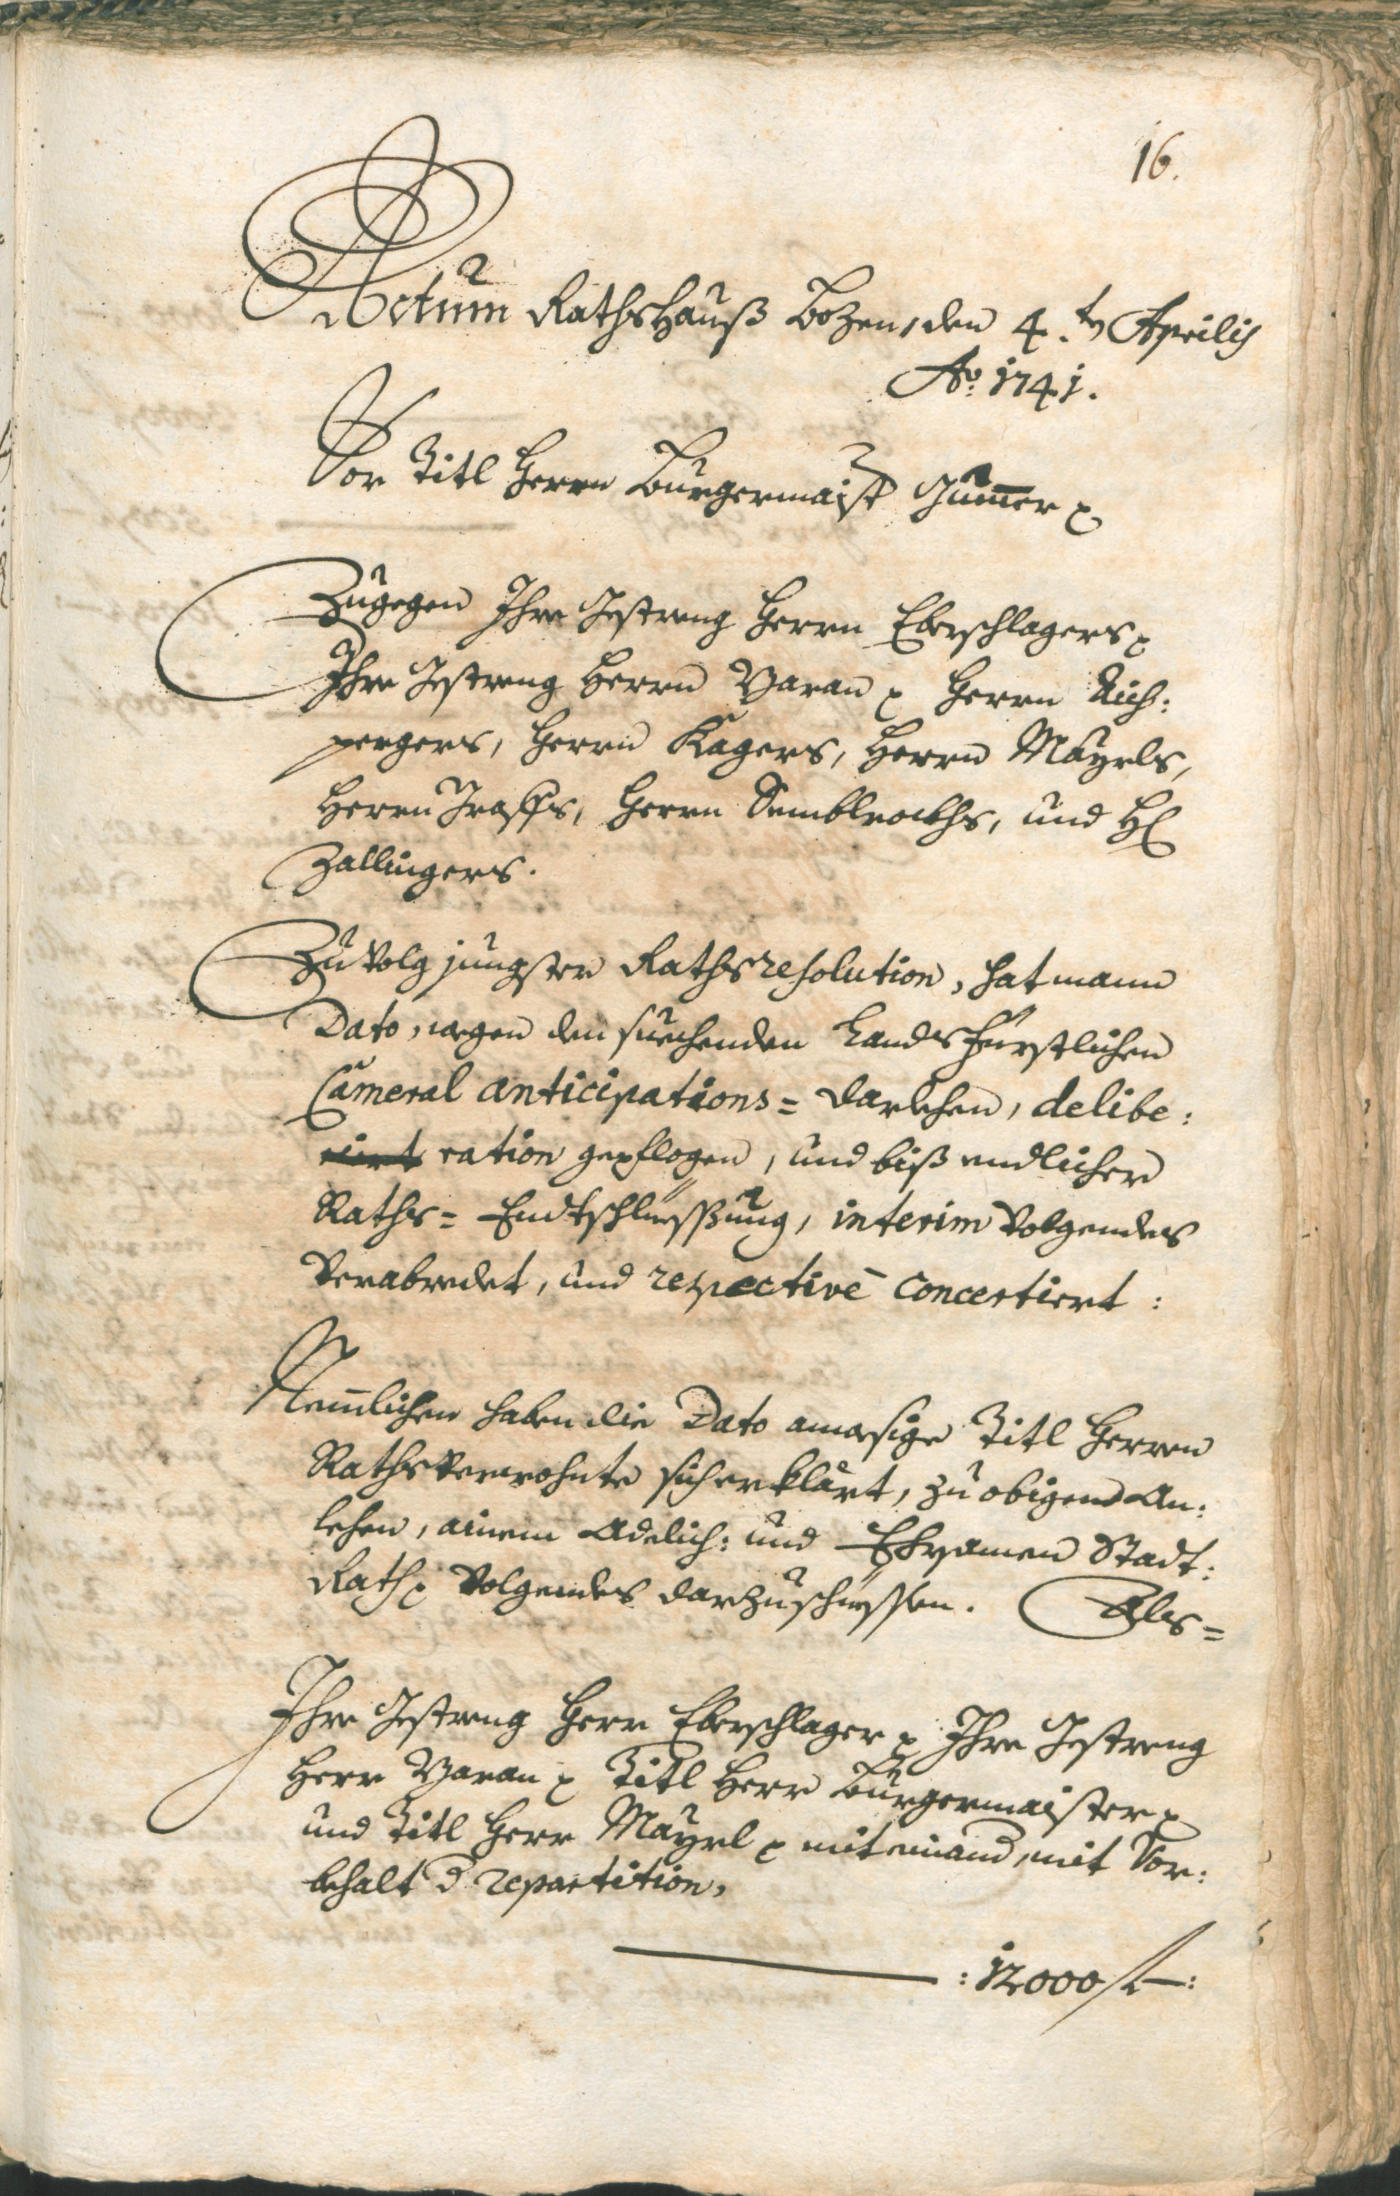 16.
Actum Rathshauß Bozen, den 4.ten Aprilis
Ao: 1741.
Vor Titl Herrn Burgermaist Gum̄er p
Zugegen Ihre Gestreng Herrn Eberschlagers p
Ihre Gestreng Herrn Varan p Herrn Aich:
pergers, Herrn Kagers, Herrn Mayrls,
Herrn Grasss, Herrn Semblrockhs, und H
Zallingers.
Zu Volg jungster Rathsresolution, hat mann
Dato, wegen den suechenden Landsfürstlichen
Cameral anticipations= darlehen, delibe:
ration gepflogen, und biß endlicher
Raths= Endtschliessßung, interim Volgendes
Verabredet, und respectivè concertiert:
Nem̄lichen haben die Dato anwesige Titl Herren
Rathsverwohnte sich erklärt, zu obigen An:
lehen, ainem Adelich: und Ehrsamen Stadt:
Rath p Volgendes darzuschiessen. Als=
Ihre Gestreng Herr Eberschlager p Ihre Gestreng
Herr Varan p Titl Herr Burgermaister p
und Titl Herr Mayrl p miteinand, mit Vor:
behalt d repartition,
: 12000 f —: